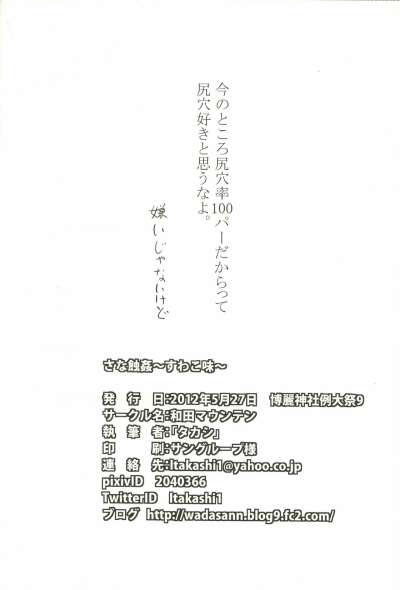 今のところ尻穴率100パーだからって
尻穴好きと思うなよ。
嫌いじゃないけど
さな蝕姦～すわこ味～
発行日:2012年5月27日　博麗神社例大祭9
サークル名:和田マウンテン
執筆者:『タカシ』
印刷:サングループ様
連絡先:ltakashi1@yahoo.co.jp
pixivID　2040366
TwitterID　ltakashi1
ブログ　http://wadasann.blog9.fc2.com/